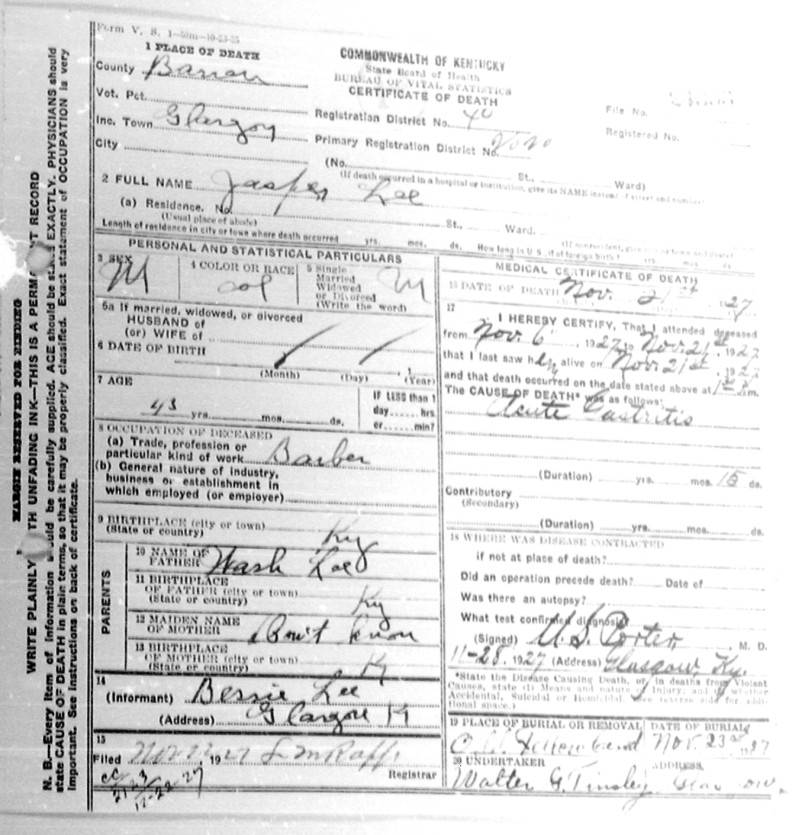 Form V. S. 1-50m-10-23-25
1 PLACE OF DEATH
COMMONWEALTH OF KENTUCKY
State Board of Health
BUREAU OF VITAL STATISTICS
CERTIFICATE OF DEATH
County Barren
Vot. Pct.
Inc. Town Glasgow
City
File No.
Registered No.
Registration District No. 40
Primary Registration District No.
(No. St., Ward)
(If death occurred in a hospital or institution, give its NAME instead of street and number)
2 FULL NAME Jasper Lee
(a) Residence. No. St., Ward.
(Usual place of abode)
Length of residence in city or town where death occurred yrs. mos. ds. How long in U. S., if of foreign birth? yrs. mos. ds.
PERSONAL AND STATISTICAL PARTICULARS
3 SEX M
4 COLOR OR RACE col
5 Single Married Widowed or Divorced (Write the word) M
5a If married, widowed, or divorced
HUSBAND of
(or) WIFE of
6 DATE OF BIRTH / /
(Month) (Day) (Year)
7 AGE
43 yrs. mos. ds.
IF LESS than 1
day...... hrs.
or...... min?
8 OCCUPATION OF DECEASED
(a) Trade, profession or
particular kind of work Barber
(b) General nature of industry,
business or establishment in
which employed (or employer)
9 BIRTHPLACE (city or town)
(State or country) Ky
PARENTS
10 NAME OF
FATHER Wash Lee
11 BIRTHPLACE
OF FATHER (city or town)
(State or country) Ky
12 MAIDEN NAME
OF MOTHER Don't know
13 BIRTHPLACE
OF MOTHER (city or town)
(State or country) K
14
(Informant) Bessie Lee
(Address) Glasgow K
15
Filed 192
Registrar
12-22-27
MEDICAL CERTIFICATE OF DEATH
16 DATE OF DEATH Nov. 21st 1927
17
I HEREBY CERTIFY, That I attended deceased
from Nov. 6, 1927 to Nov. 21st 1927
that I last saw h alive on Nov. 21st, 1927
and that death occurred on the date stated above at m.
The CAUSE OF DEATH* was as follows:
Acute Gastritis
(Duration) yrs. mos. 15 ds.
Contributory
(Secondary)
(Duration) yrs. mos. ds.
18 WHERE WAS DISEASE CONTRACTED
if not at place of death?
Did an operation precede death? Date of
Was there an autopsy?
What test confirmed diagnosis?
(Signed) Porter, M. D.
11-28, 1927 (Address) Glasgow, Ky.
*State the Disease Causing Death, or, in deaths from Violent
Causes, state (1) Means and nature of Injury; and (2) whether
Accidental, Suicidal or Homicidal. (See reverse side for addi-
tional space.)
19 PLACE OF BURIAL OR REMOVAL
DATE OF BURIAL
Nov. 23rd 1927
20 UNDERTAKER
ADDRESS
Walter G. Tinsley
MARGIN RESERVED FOR BINDING
WRITE PLAINLY WITH UNFADING INK—THIS IS A PERMANENT RECORD
N. B.—Every item of information should be carefully supplied. AGE should be stated EXACTLY. PHYSICIANS should
state CAUSE OF DEATH in plain terms, so that it may be properly classified. Exact statement of OCCUPATION is very
important. See instructions on back of certificate.